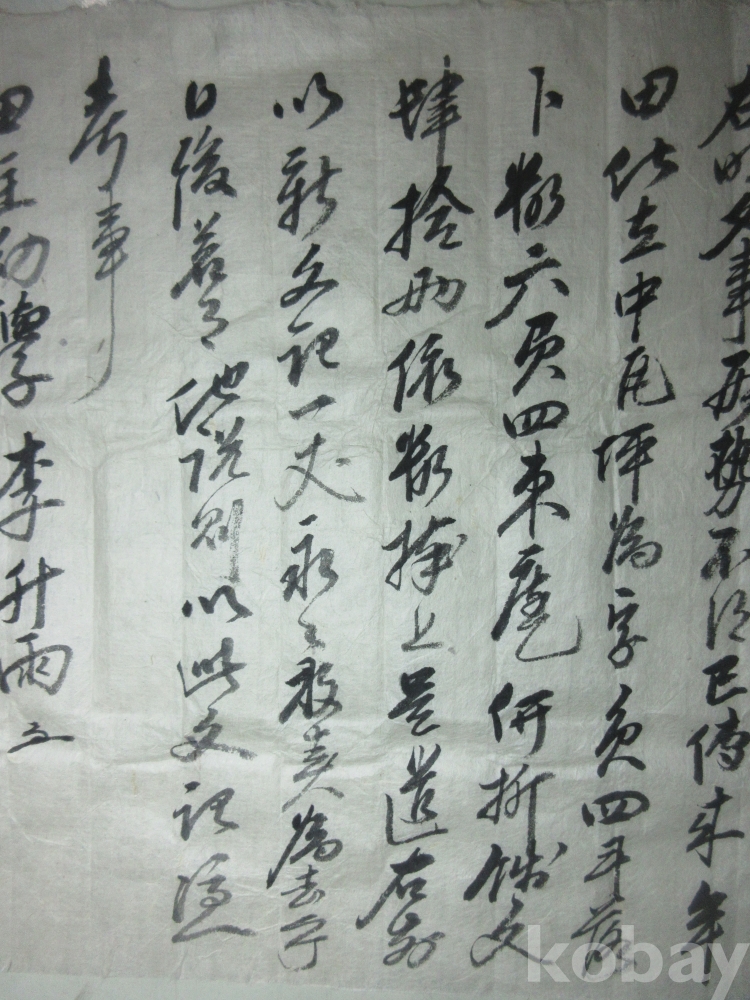 右明文事段勢不得已傳來牟
田伏在中瓦坪為字負四斗落
卜數六負四束庫価折錢文
肆拾兩依數捧上是遣右前
以新文記一丈永〻放賣為去乎
日後若有他説則以此文記憑
考事
田主幼學李升雨
kobay